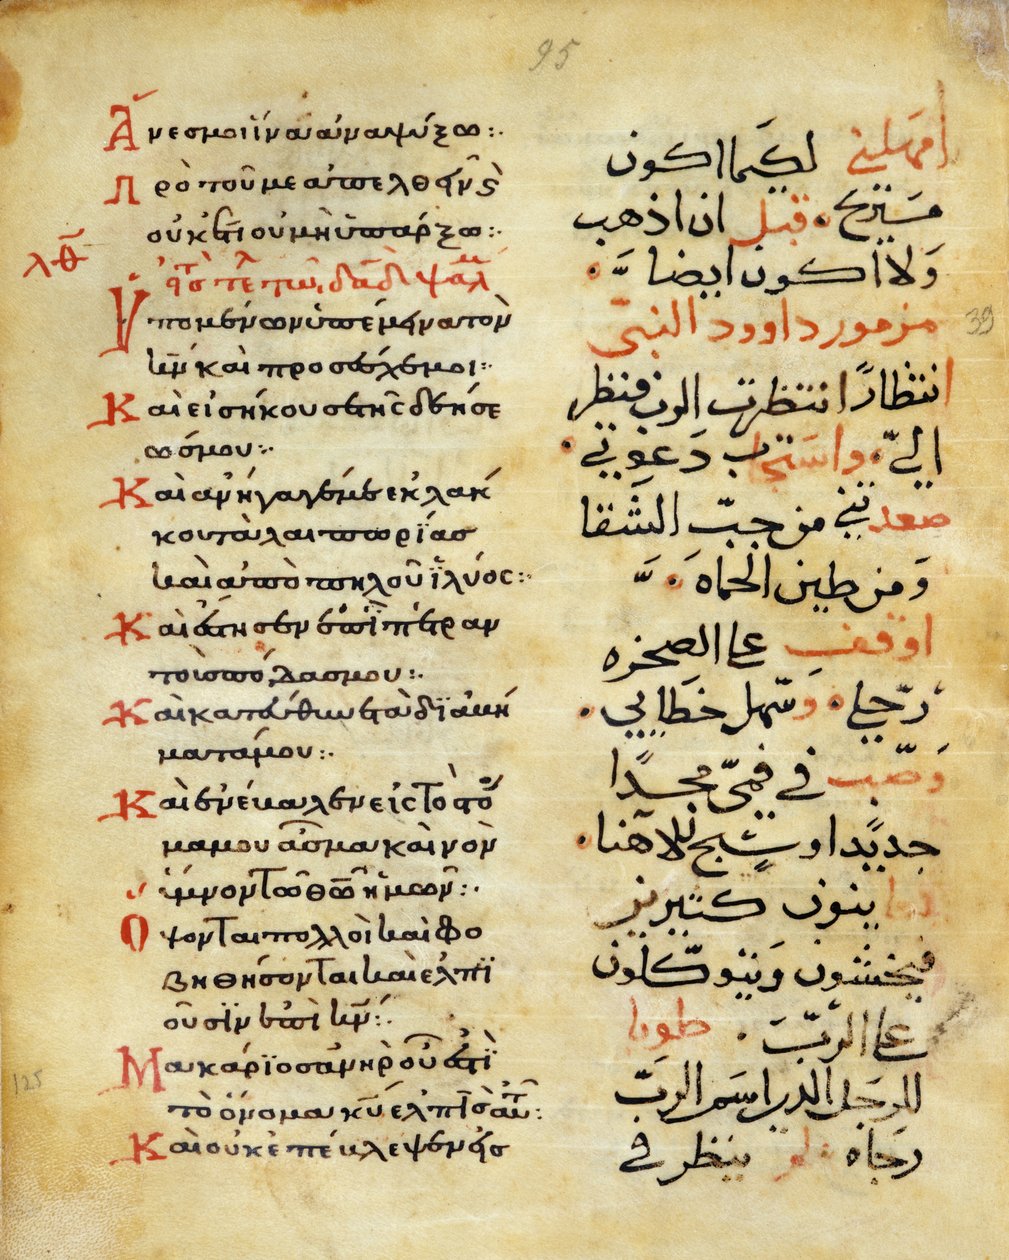 95
Ἄνες μοι ἵνα ἀναψύξω:·
Πρὸ τοῦ με ἀπελθῆν ϗ
οὐκέτι οὐ μὴ ὑπάρξω:·
λθ
εἰς τ τε τῶ δαδ ψαλ
Ὑπομένων ὑπέμηνα τὸν
κν καὶ προσέσχε μοι:·
Καὶ εἰσήκουσε τῆς δεήσε
ως μου:·
Καὶ ἀνήγαγέ με ἐκ λάκ
κου ταλαιπωρίας
καὶ ἀπὸ πηλοῦ ἰλύος:·
Καὶ ἔστησεν ἐπὶ πέτραν
τοὺς πόδας μου:·
Καὶ κατεύθυνε τὰ διαβή
ματά μου:·
Καὶ ἐνέβαλεν εἰς τὸ στό
μα μου ᾆσμα καινὸν
ὕμνον τῶ θῶ ἡμῶν:·
Ὄψονται πολλοὶ καὶ φο
βηθήσονται καὶ ἐλπι
οῦσιν ἐπὶ κν:·
Μακάριος ἀνὴρ οὗ ἐστὶ
τὸ ὄνομα κυ ἐλπὶς αὐτ:·
Καὶ οὐκ ἐπέβλεψεν εἰς
125
امهلني لكيما اكون
مستريح. قبل ان اذهب
ولا اكون ايضا
مزمور داوود النبي
39
انتظارًا انتظرت الرب فنظر
اليّ. واستجاب دعوتي
صعدني من جبّ الشقا
ومن طين الحماه
اوقف على الصخره
رجلي. وسهل خطايي.
وصب في فمي مجدًا
جديدا وتسبيح للاهنا.
يعاينون كتيرين
فيخشون ويتوكلون
على الرب. طوبا
للرجل الذي اسم الرب
رجاه ولم ينظر في